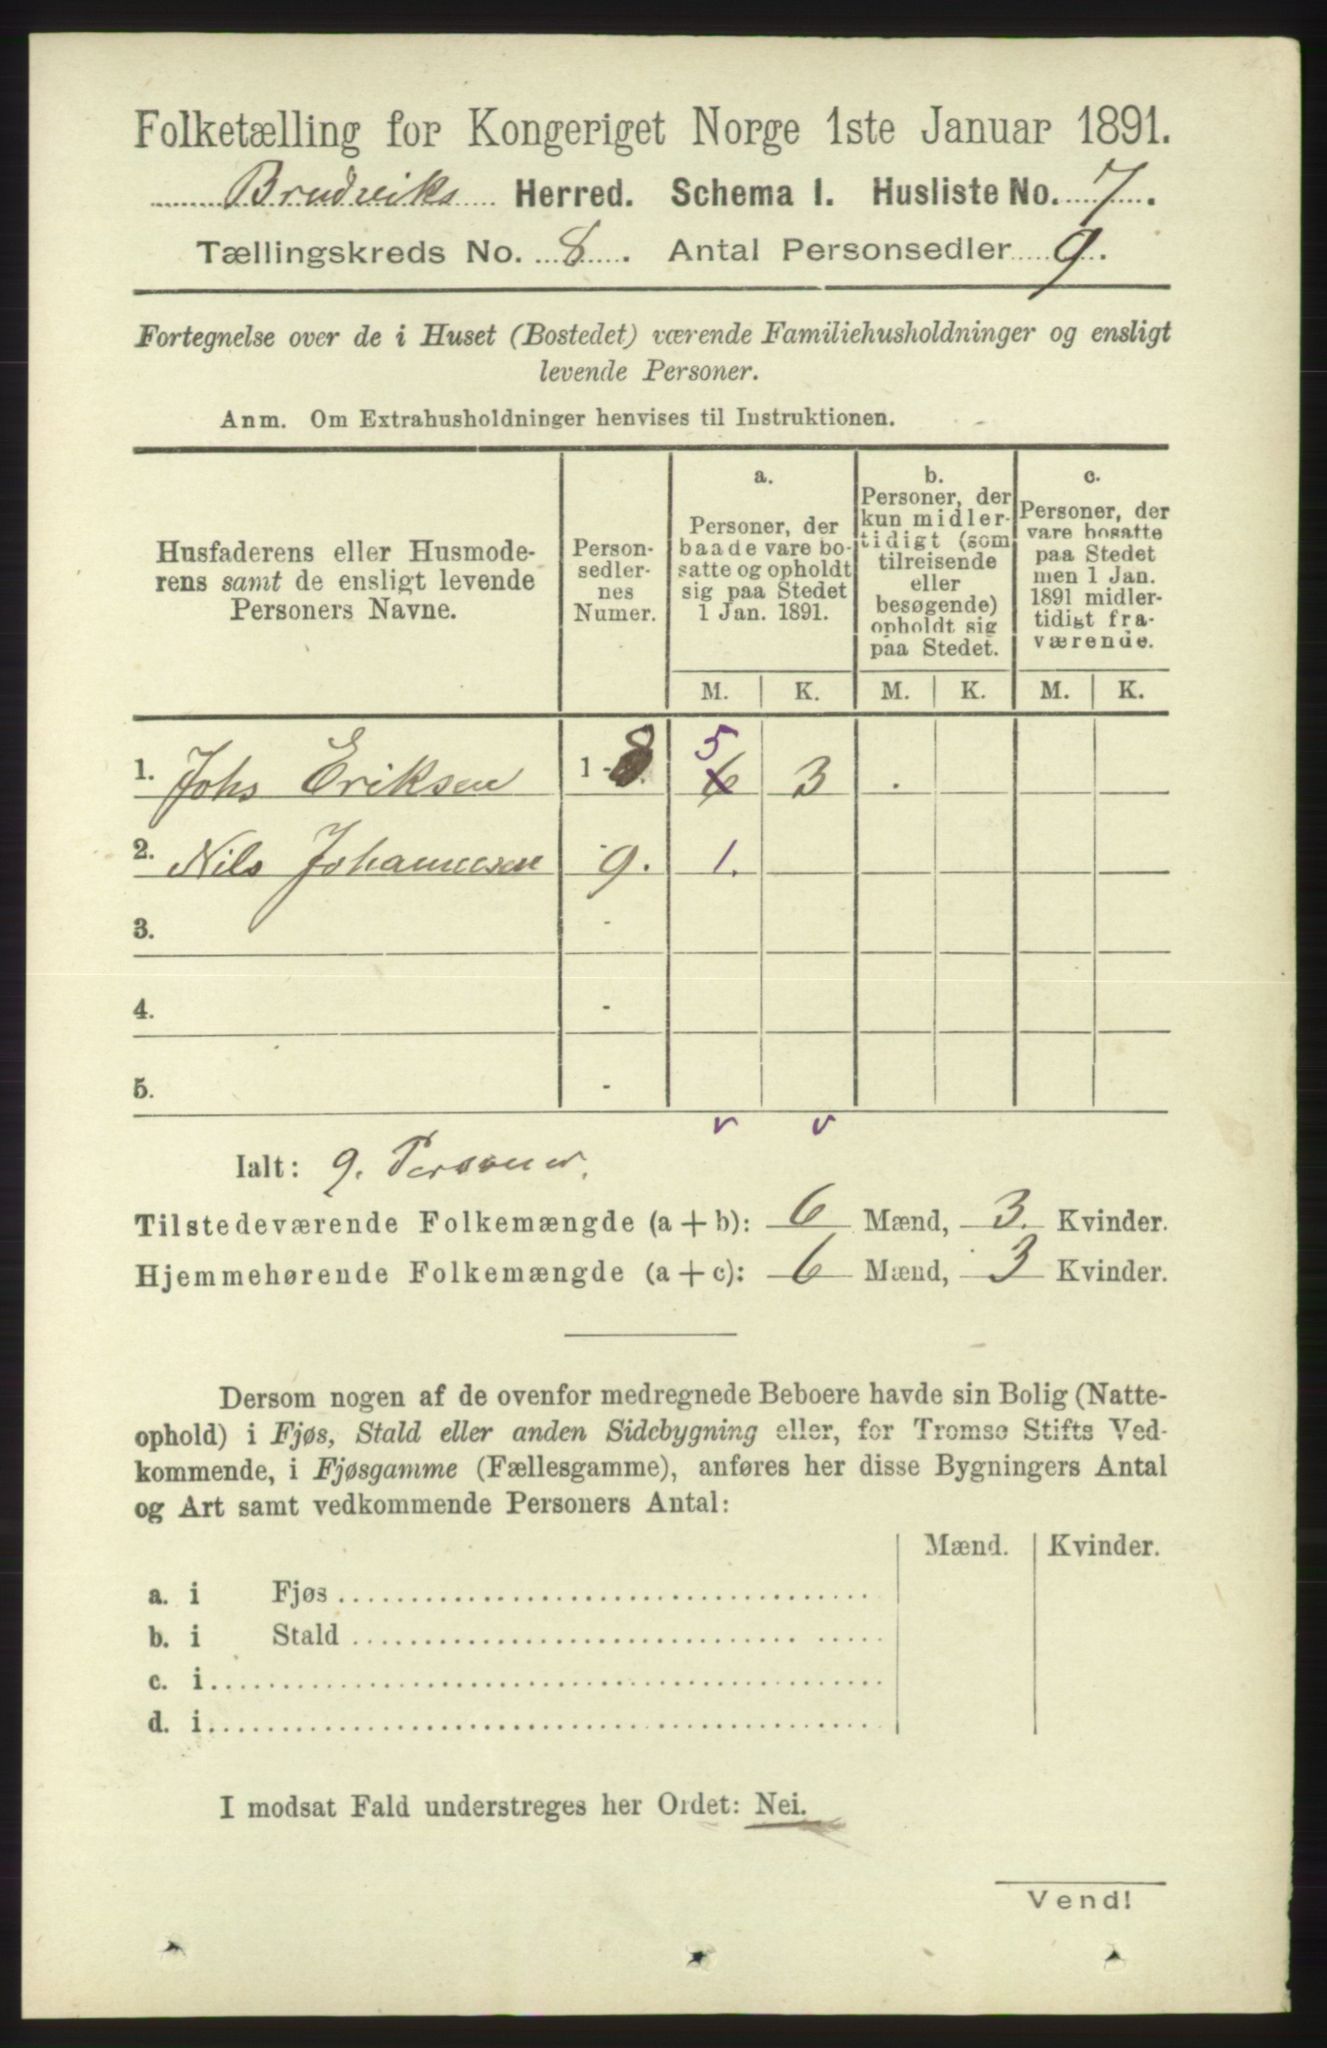 Folketælling for Kongeriget Norge 1ste Januar 1891.
Brudviks Herred. Schema I. Husliste No. 7.
Tællingskreds No. 8. Antal Personsedler 9.
Fortegnelse over de i Huset (Bostedet) værende Familiehusholdninger og ensligt
levende Personer.
Anm. Om Extrahusholdninger henvises til Instruktionen.
Husfaderens eller Husmode-
rens samt de ensligt levende
Personers Navne.
Person-
sedler-
nes
Numer.
a.
Personer, der
baade vare bo-
satte og opholdt
sig paa Stedet
1 Jan. 1891.
b.
Personer, der
kun midler-
tidigt (som
tilreisende
eller
besøgende)
opholdt sig
paa Stedet.
c.
Personer, der
vare bosatte
paa Stedet
men 1 Jan.
1891 midler-
tidigt fra-
værende.
M. K. M. K. M. K.
5
1. Johs Eriksen 1 - 8. 6 3 .
2. Nils Johannesen 9. 1.
3. -
4. -
5. -
v v
Ialt: 9. Personer.
Tilstedeværende Folkemængde (a + b): 6 Mænd, 3. Kvinder.
Hjemmehørende Folkemængde (a + c): 6 Mænd, 3 Kvinder.
Dersom nogen af de ovenfor medregnede Beboere havde sin Bolig (Natte-
ophold) i Fjøs, Stald eller anden Sidebygning eller, for Tromsø Stifts Ved-
kommende, i Fjøsgamme (Fællesgamme), anføres her disse Bygningers Antal
og Art samt vedkommende Personers Antal:
Mænd. Kvinder.
a. i Fjøs
b. i Stald
c. i
d. i
I modsat Fald understreges her Ordet: Nei.
Vend!